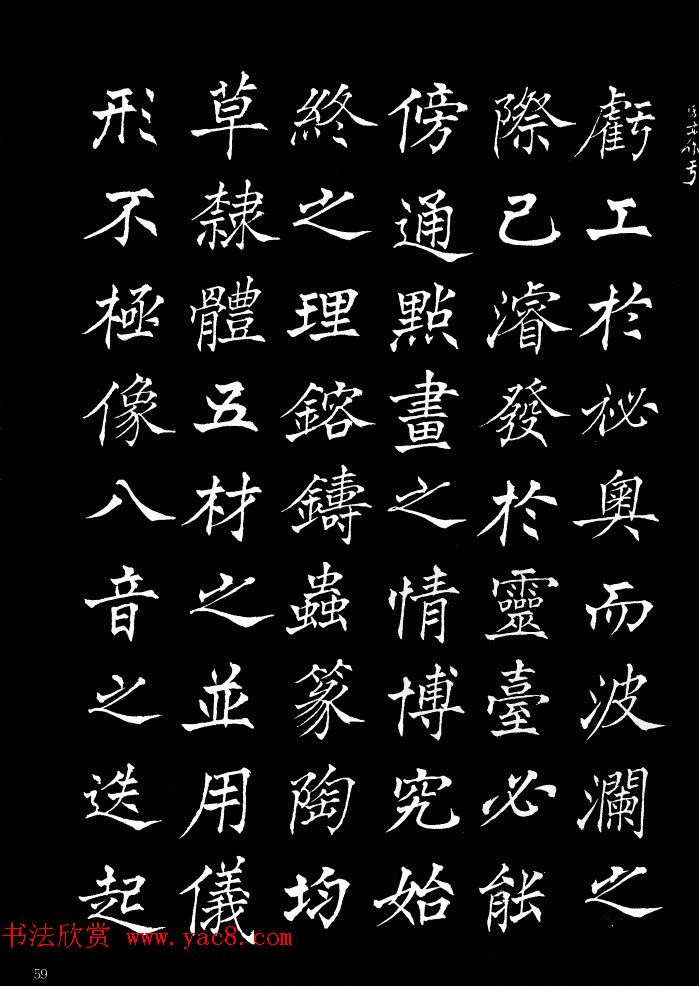 虧工於祕奧而波瀾之
際已濬發於靈臺必能
傍通點畫之情博究始
終之理鎔鑄蟲篆陶均
草隸體五材之並用儀
形不極像八音之迭起
书法欣赏 www.yac8.com
59